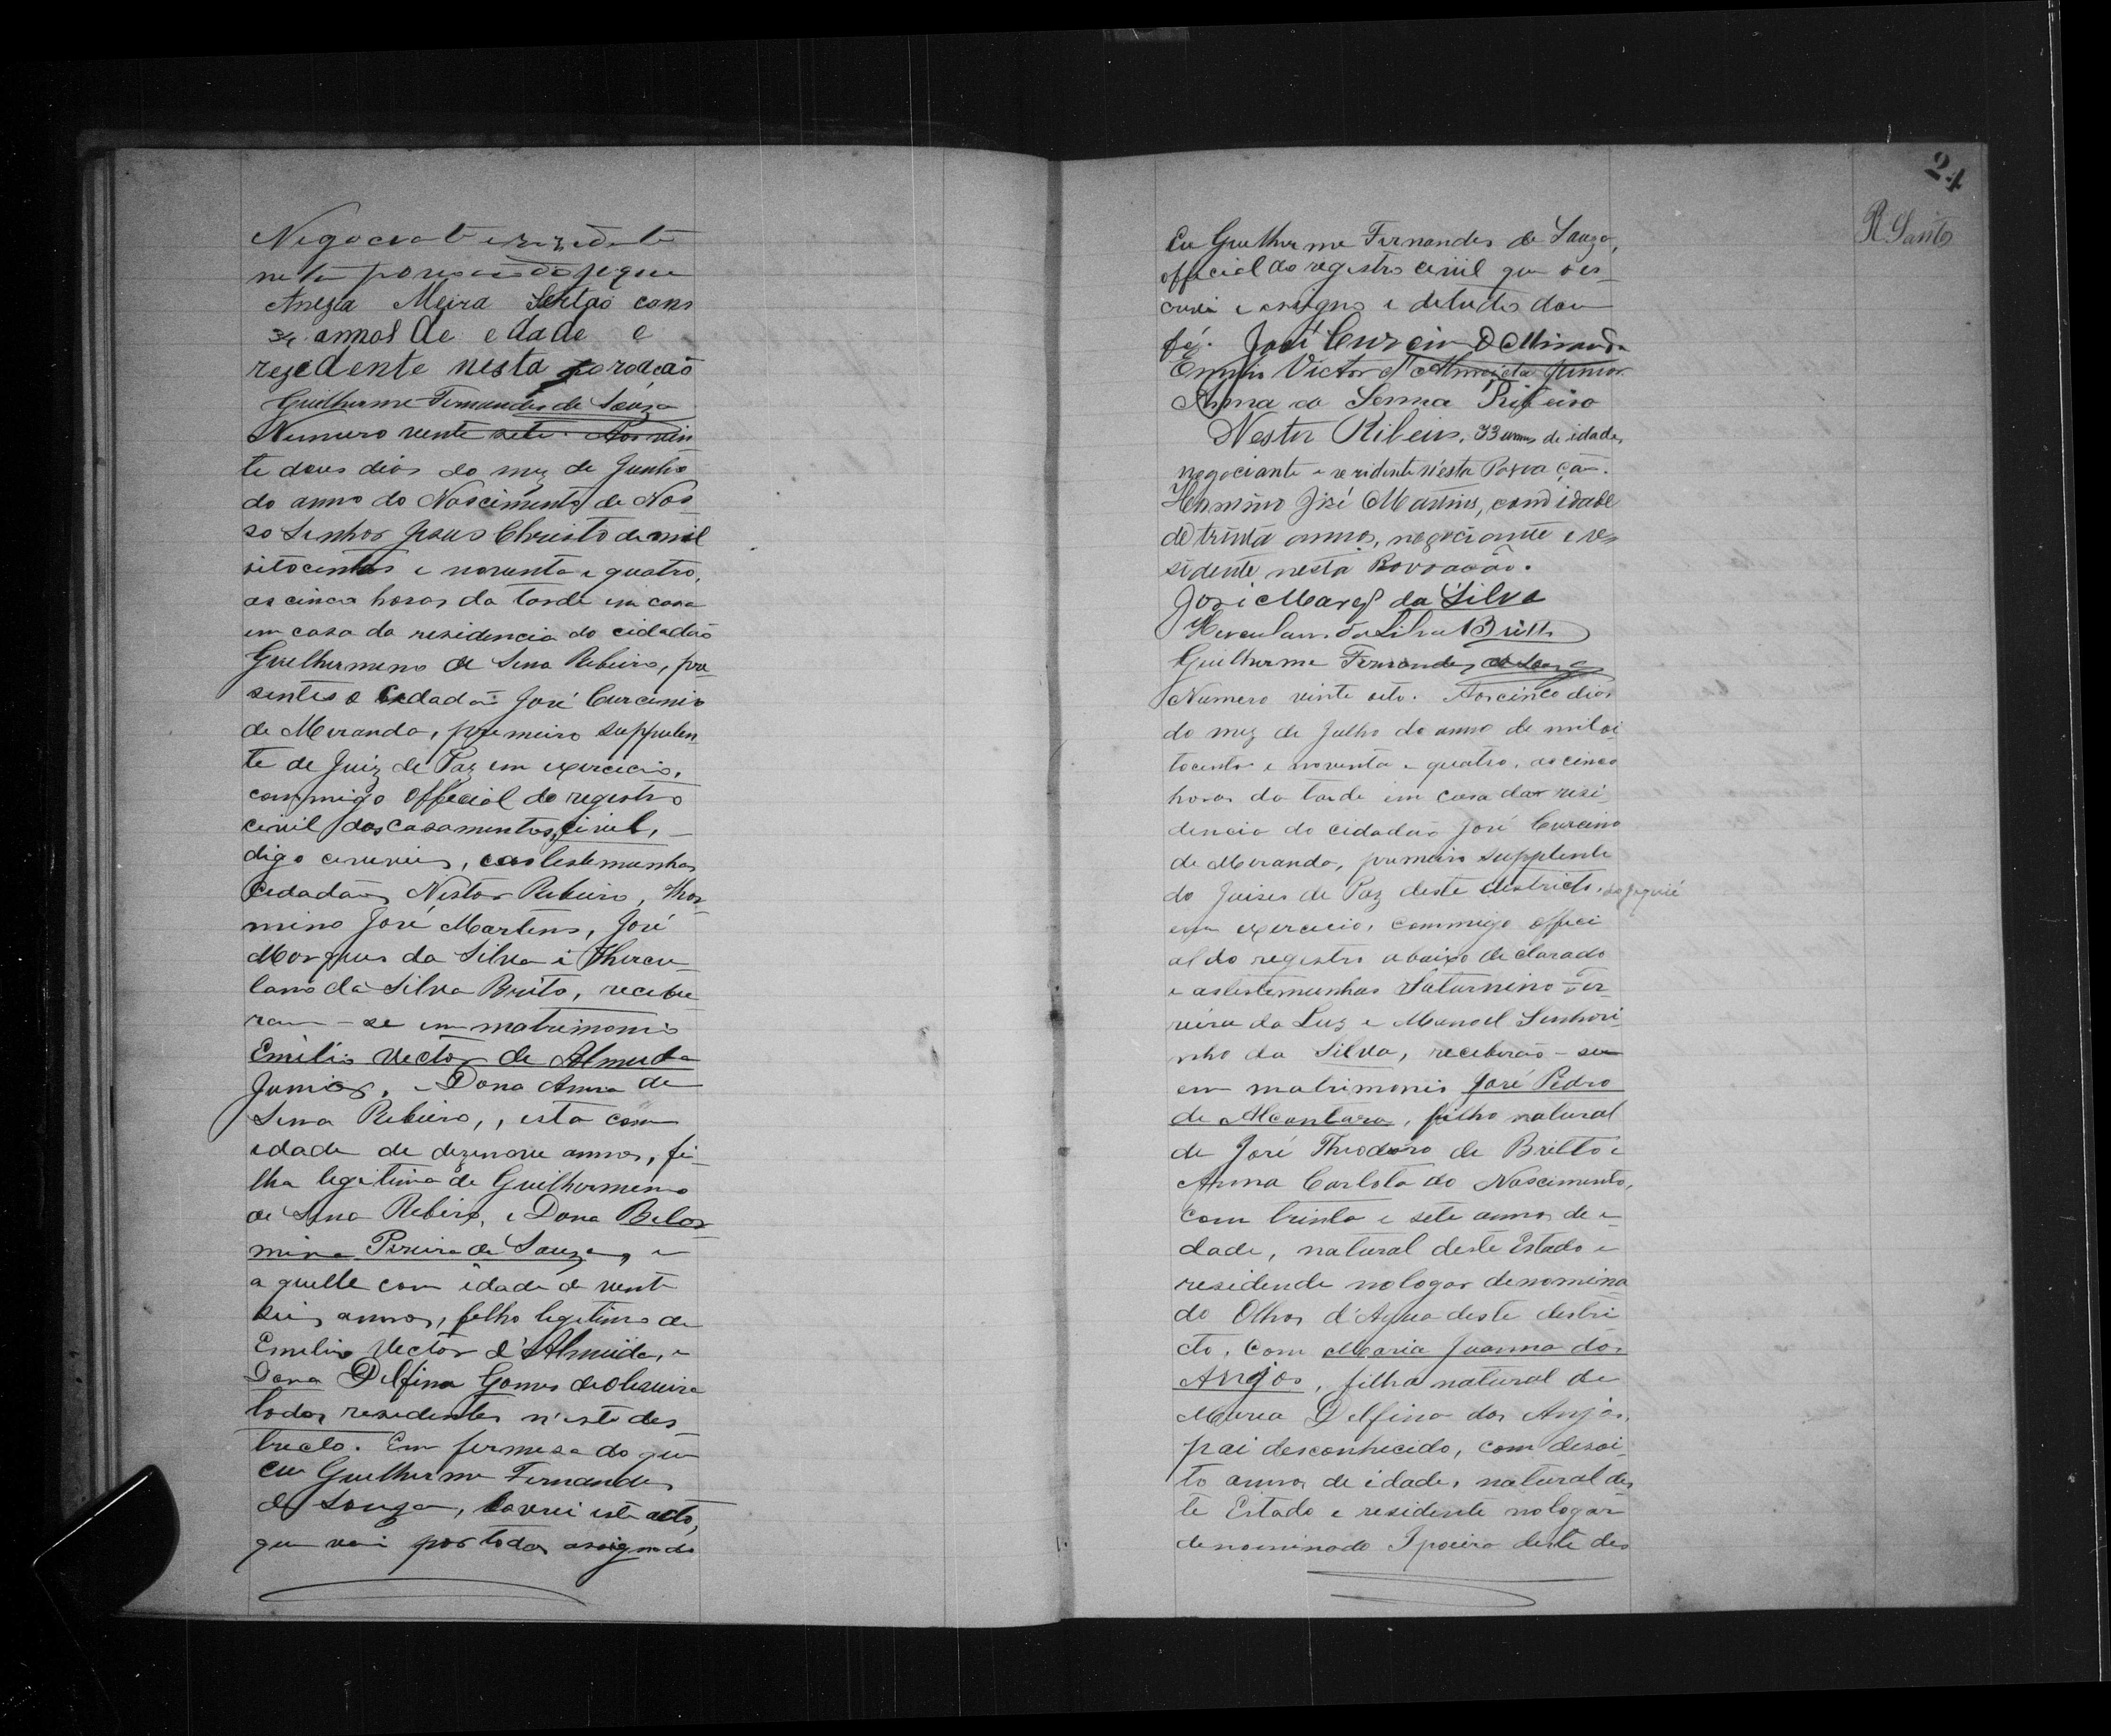 Negociante e rezidente
nesta povoação do Jequie
Anezia Meira Sertão com
34 annos de edade e
rezedente nesta povoação
Guilherme Fernandes de Souza
Numero vente sete. Aos vin
te dous dias do mez de Junho
do anno do Nascimento de Nos
so Senhor Jesus Christo de mil
oitocentos e noventa e quatro,
as cinco horas da tarde em casa
em casa da residencia do cidadão
Guelhermeno de Sena Rebeiro, pre
sentes o Cidadão José Curcenio
de Meranda, premeiro supplen
te de Juiz de Paz em exercecio,
commigo Offecial do registro
cevil dos casamentos, civel, –
digo cevevis, e as testemunhas
Cidadãos Nestor Rebeiro, Her
mino José Martens, José
Marques da Silva e Hercu-
lano da Silva Brito, recebe
ram-se em matrimonio
Emilio Vector de Almeida
Junior, e Dona Anna de
Sena Rebeiro,, esta com
idade de dezenove annos, fi-
lha legitima de Guilhermeno
de Sena Rebeiro, e Dona Belar
mina Pereira de Souza, e
a quelle com idade de vente
seis annos, felho legitimo de
Emilio Vector d'Almeida, e
Dona Delfina Gomes de Oleveira
todos resedentes n'este des
trecto. Em fermesa do que
eu Guelherme Fernandes
de Souza, lavrei este acto,
que vai por todos assignado
24
R. Santo
Eu Guelherme Fernandes de Souza,
offecial do registro cevil que o es-
crevi e assigno e de tudo dou
fé. José Curcino de Miranda
Emilio Victor d'Almeida Junior
Anna de Senna Ribeiro
Nestor Ribeiro, 33 annos de idade,
negociante e rezidente n'esta Povoação.
Hermino José Martins, com idade
de trinta annos, negociante e re-
sidente nesta Povoação.
José Marqs da Silva
Herculano da Silva Britto
Guilherme Fernandes de Souza
Numero vinte oito. Aos cinco dias
do mez de Julho do anno de mil oi-
tocento e noventa e quatro, as cinco
horas da tarde em casa da resi-
dencia do cidadão José Curcino
de Meranda, premeiro supplente
do Juises de Paz deste destricto, de Jequié
em exercecio, commigo offeci
al do registro abaixo declarado
e as testemunhas Saturnino Fer-
reira da Luz e Manoel Senhori-
nho da Silva, receberão-se
em matrimonio José Pedro
de Alcantara, filho natural
de José Theodoro de Britto e
Anna Carlota do Nascimento,
com trinta e sete annos de e-
dade, natural deste Estado e
residende no logar denomina
do Olhos d'Agua deste destri
cto, com Maria Joanna dos
Anjos, filha natural de
Maria Delfina dos Anjos,
pai desconhecido, com desoi-
to annos de idade, natural des
te Estado e residente no logar
denominado Ipoeira deste des